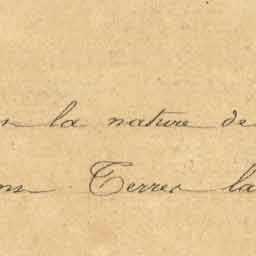 la nature de
Terres la